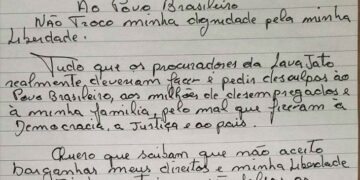 Ao Povo Brasileiro
Não Troco minha dignidade pela minha
Liberdade.
Tudo que os procuradores da Lava Jato
realmente deveriam fazer é pedir desculpas ao
Povo Brasileiro, aos milhões de desempregados e
à minha familia, pelo mal que fizeram à
Democracia, a Justiça e ao país.
Quero que saibam que não aceito
barganhar meus direitos e minha Liberdade